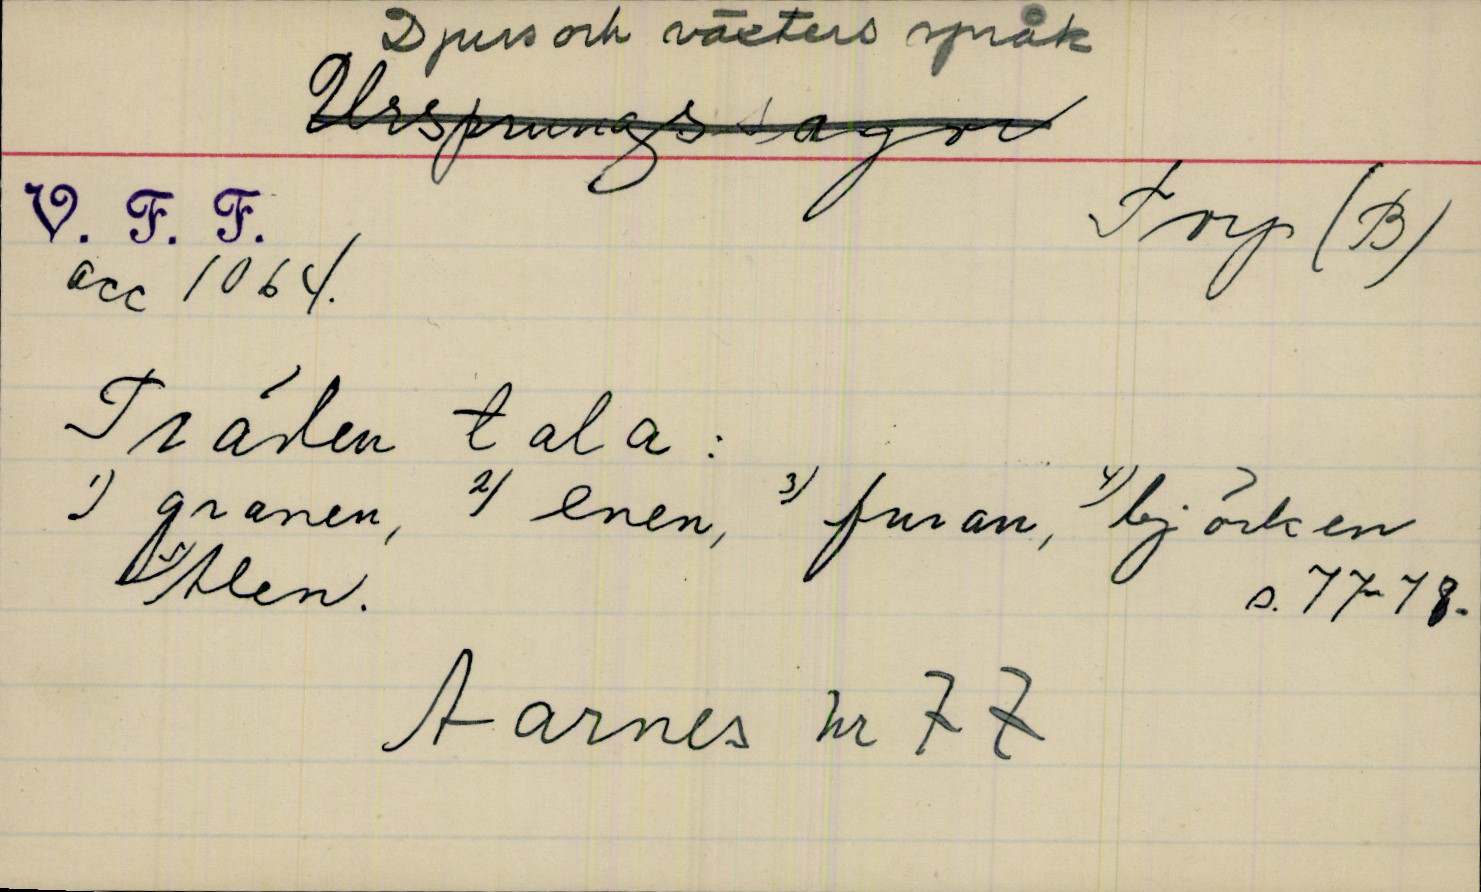 Djurs och växters språk
Ursprungssagor
V. F. F.
Fryp (B)
acc 1064.
Träden tala:
1) granen, 2) enen, 3) furan, 4) björken
5) Alen.
s. 77-78.
Aarnes nr 77